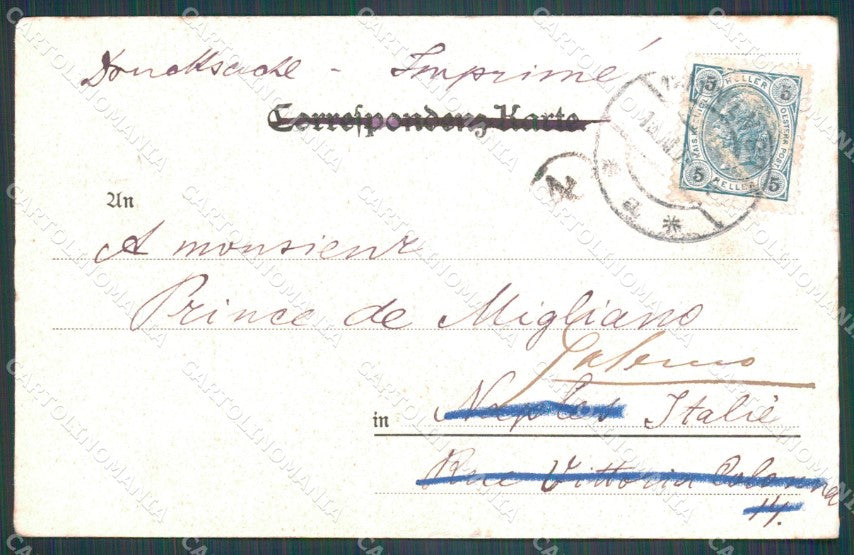 Drucksache - Imprimé
Correspondenz-Karte.
5 HELLER 5
5 HELLER 5
N
* a *
An
A monsieur
Prince de Migliano
Palermo
in Naples Italie
Rue Vittoria Colonna
14.
CARTOLINOMANIA